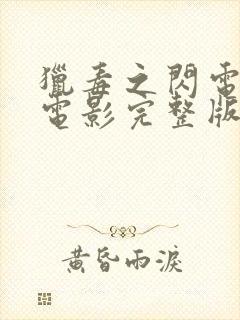 獵毒之閃電
電影完整版
黃昏雨淚